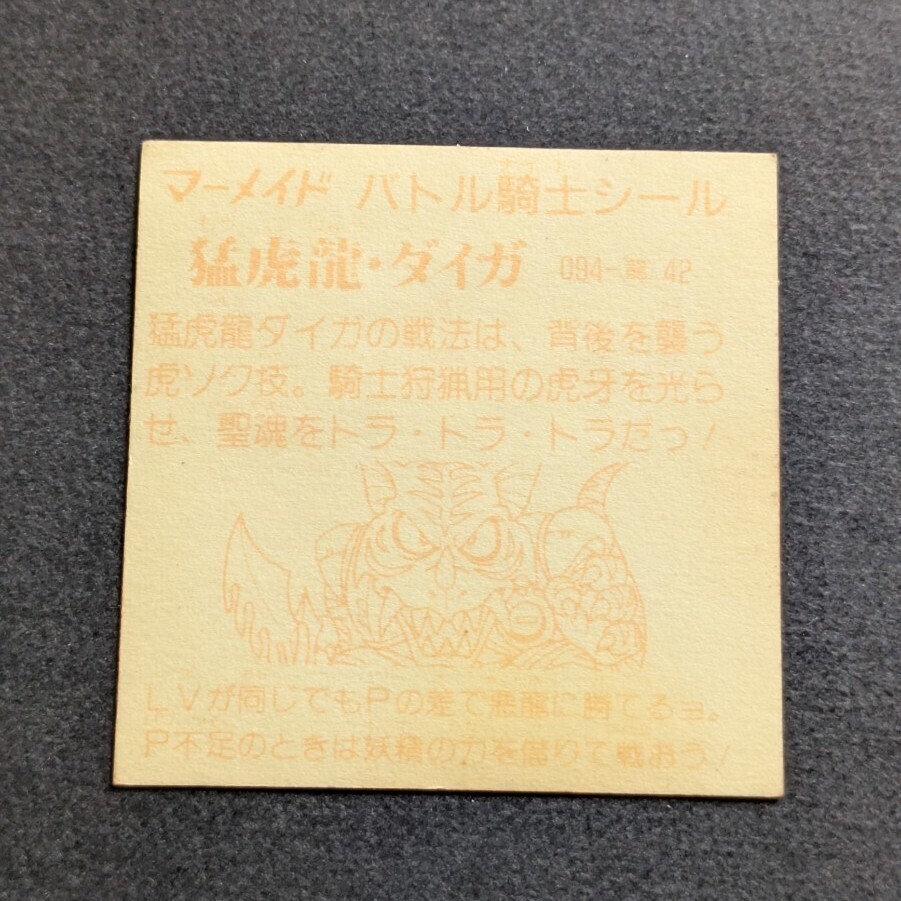 マーメイド バトル騎士シール
猛虎龍・ダイガ 094-龍 42
猛虎龍ダイガの戦法は、背後を襲う
虎ソク技。騎士狩猟用の虎牙を光ら
せ、聖魂をトラ・トラ・トラだっ！
ＬＶが同じでもＰの差で悪龍に勝てるヨ。
Ｐ不足のときは妖精の力を借りて戦おう！